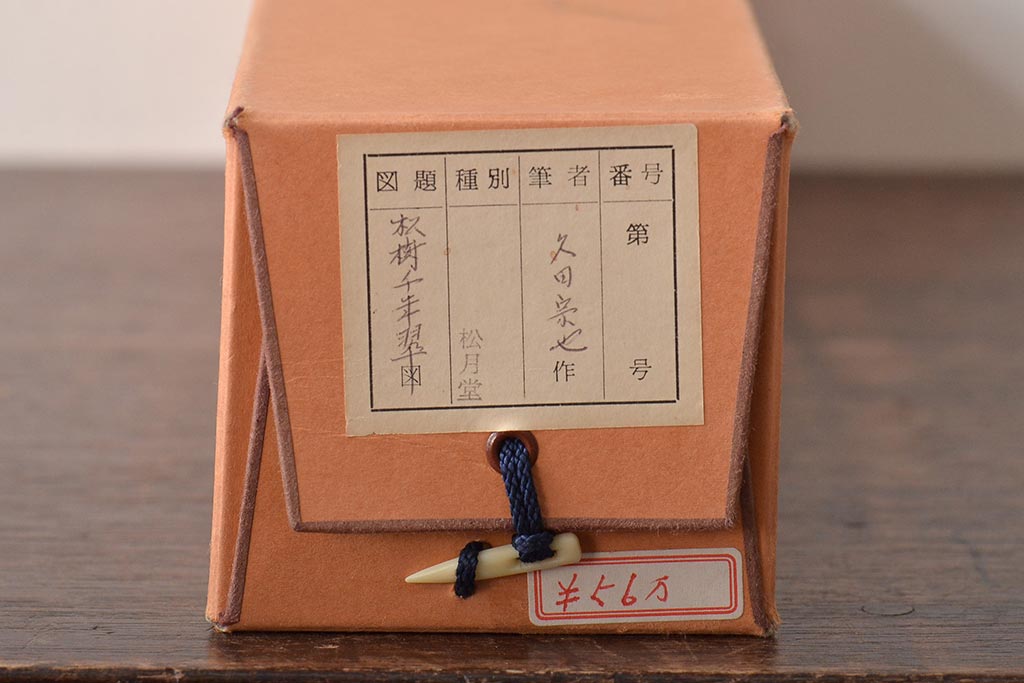 番号
第
号
筆者
久田宗也
作
種別
松月堂
図題
松樹千年翠
図
¥56万